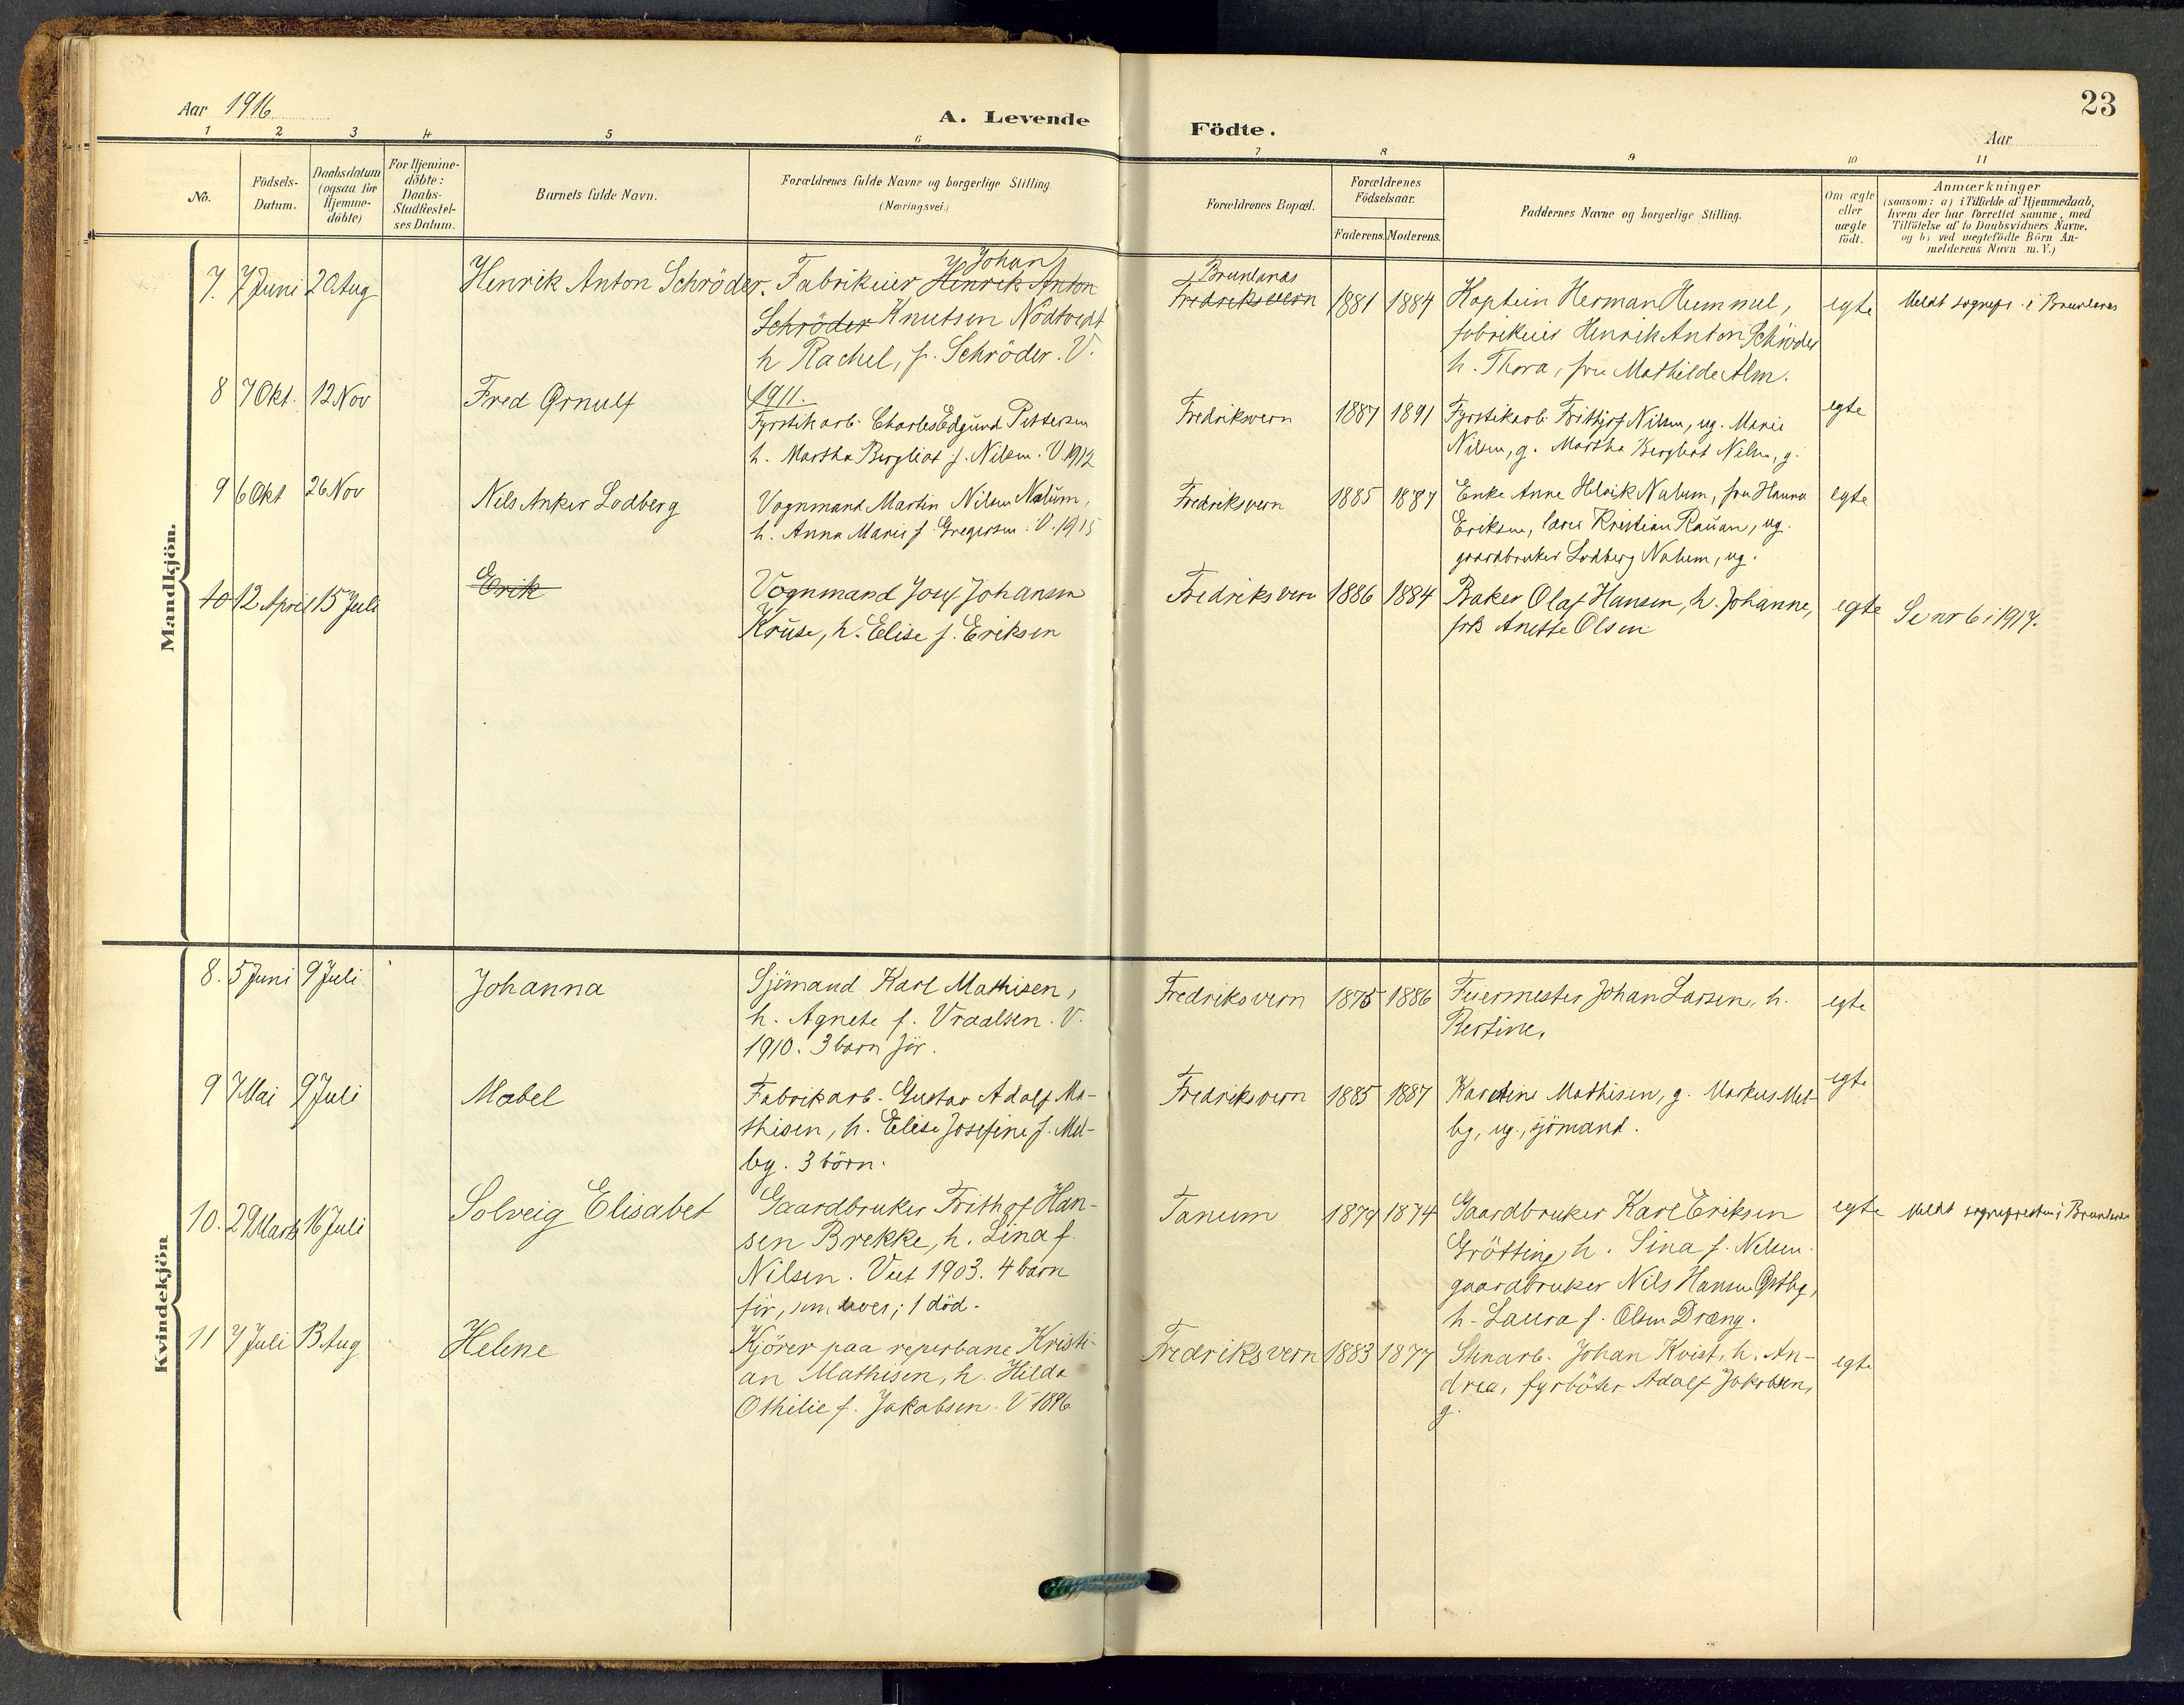 23
Aar 1916
A. Levende
Födte.
Aar
1 2 3 4 5 6 7 8 9 10 11
No.
Födsels-
Datum.
Daabsdatum
(ogsaa for
Hjemme-
döbte)
For Hjemme-
döbte:
Daabs-
Stadfæstel-
ses Datum.
Barnets fulde Navn.
Forældrenes fulde Navne og borgerlige Stilling.
(Næringsvei.)
Forældrenes Bopæl.
Forældrenes
Födselsaar.
Faderens. Moderens.
Faddernes Navne og borgerlige Stilling.
Om ægte
eller
uægte
födt.
Anmærkninger
(saasom: a) i Tilfælde af Hjemmedaab,
hvem der har forrettet samme, med
Tilföielse af to Daabsvidners Navne,
og b) ved uægtefödte Börn An-
melderens Navn m.V.)
Mandkjön.
7. 7 Juni 20 Aug
Henrik Anton Schröder.
Johan
Fabrikeier Henrik Anton
Schröder Knutsen Nödtvedt
h Rachel, f. Schröder. V.
1911.
Brunlanas
Fredriksvern
1881 1884
Kaptein Herman Hummel,
fabrikeier Henrik Anton Schröder
h. Thora, fru Mathilde Alm.
egte
Meldt sognepr. i Brunlanes
8 7 Okt. 12 Nov
Fred Ørnulf
Fyrstikarb. Charles Edgund Pettersen
h. Martha Bergliot f. Nilsen. V. 1912
Fredriksvern
1887 1891
Fyrstikarb. Frithjof Nilsen, ug. Marie
Nilsen, g. Martha Bergliot Nilsen, g.
egte
9 6 Okt 26 Nov
Nils Anker Lodberg
Vognmand Martin Nilsen Nalum,
h. Anna Marie f. Gregersen. V. 1915
Fredriksvern
1885 1887
Enke Anne Helvik Nalum, fru Hanna
Eriksen, lærer Kristian Rauan, ug.
gaardbruker Lodberg Nalum, ug.
egte
10 12 April 15 Juli
Erik
Vognmand Josef Johansen
Kruse, h. Elise f. Eriksen
Fredriksvern
1886 1884
Baker Olaf Hansen, h. Johanne,
frk Anette Olsen
egte
Se nr 6 i 1917.
Kvindekjön
8. 5 Juni 9 Juli
Johanna
Sjömand Karl Mathisen,
h. Agnete f. Vraalsen. V.
1910. 3 barn för.
Fredriksvern
1875 1886
Feiermester Johan Larsen, h.
Bertine.
egte
9 7 Mai 9 Juli
Mabel
Fabrikarb. Gustav Adolf Ma-
thisen, h. Elise Josefine f. Mel-
by. 3 börn.
Fredriksvern
1885 1887
Karetine Mathisen, g. Markus Mel-
by, ug., sjömand.
egte
10. 29 Marts 16 Juli
Solveig Elisabet
Gaardbruker Frithof Han-
sen Brekke, h. Lina f.
Nilsen. Viet 1903. 4 barn
för, som lever; 1 död.
Tanum
1879 1874
Gaardbruker Karl Eriksen
Grötting, h. Sina f. Nilsen.
gaardbruker Nils Hansen Østby,
h. Laura f. Olsen Dræng.
egte
Meldt sognepresten i Brunlanes
11 7 Juli 13 Aug
Helene
Kjörer paa reperbane Kristi-
an Mathisen, h. Hilda
Othilie f. Jakobsen. V 1896
Fredriksvern
1883 1877
Stenarb. Johan Kvist, h. An-
drea, fyrböter Adolf Jakobsen,
g.
egte